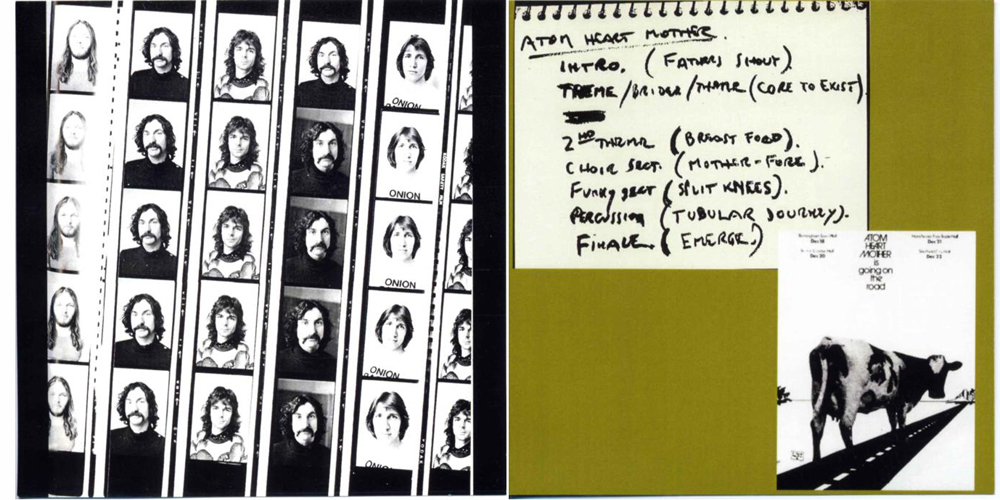 ONION
ONION
ONION
ONION
ONION
ATOM HEART MOTHER.
INTRO. (FATHERS SHOUT).
THEME/BRIDGE/THEME (CORE TO EXIST).
2ND THEME (BREAST FOOD).
CHOIR SECT. (MOTHER-FORE).
FUNKY SECT (SPLIT KNEES).
PERCUSSION (TUBULAR JOURNEY).
FINALE. (EMERGE.)
Dec 18
Dec 20
Dec 21
ATOM
HEART
MOTHER
is
going on
the
road